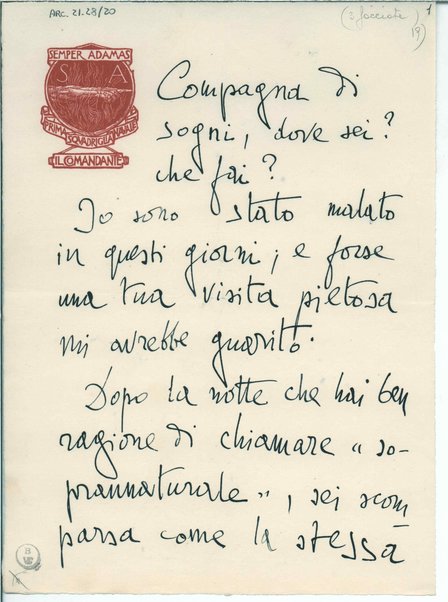 ARC. 21.28/20
(3 facciate)
1
19)
SEMPER ADAMAS
S A
PRIMA SQUADRIGLIA NAVALE
IL COMANDANTE
Compagna di
sogni, dove sei?
che fai?
Io sono stato malato
in questi giorni; e forse
una tua visita pietosa
mi avrebbe guarito.
Dopo la notte che hai ben
ragione di chiamare "so-
prannaturale", sei scom
parsa come la stessa
8